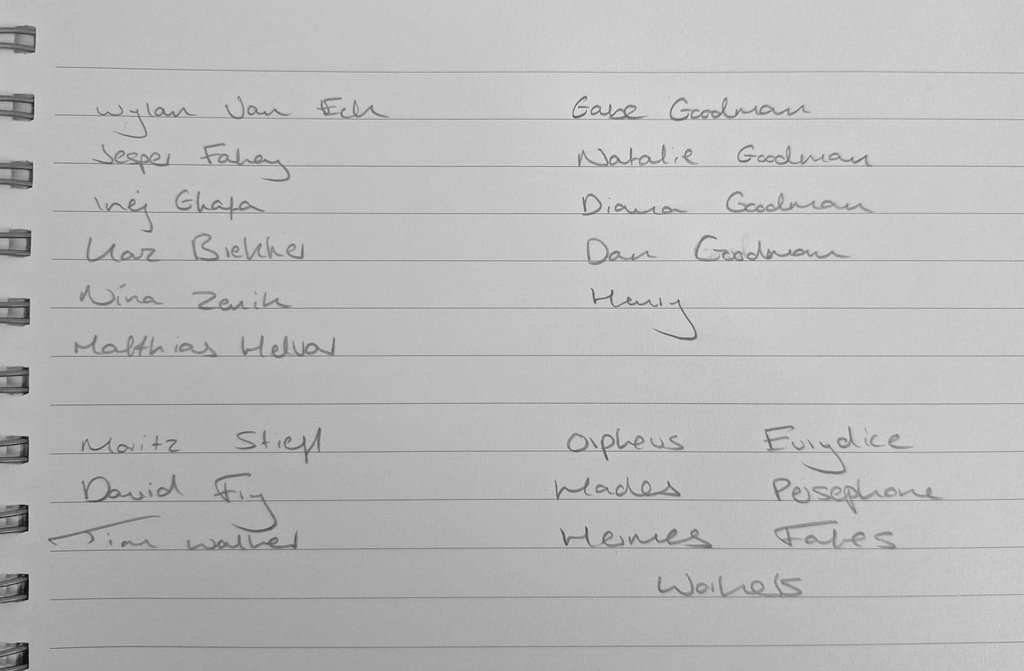 Wylan Van Eck
Jesper Fahey
Inej Ghafa
Kaz Brekker
Nina Zenik
Matthias Helvar
Gabe Goodman
Natalie Goodman
Diana Goodman
Dan Goodman
Henry
Moritz Stiefl
David Fry
Tim Walker
Orpheus Eurydice
Hades Persephone
Hermes Fates
Workers